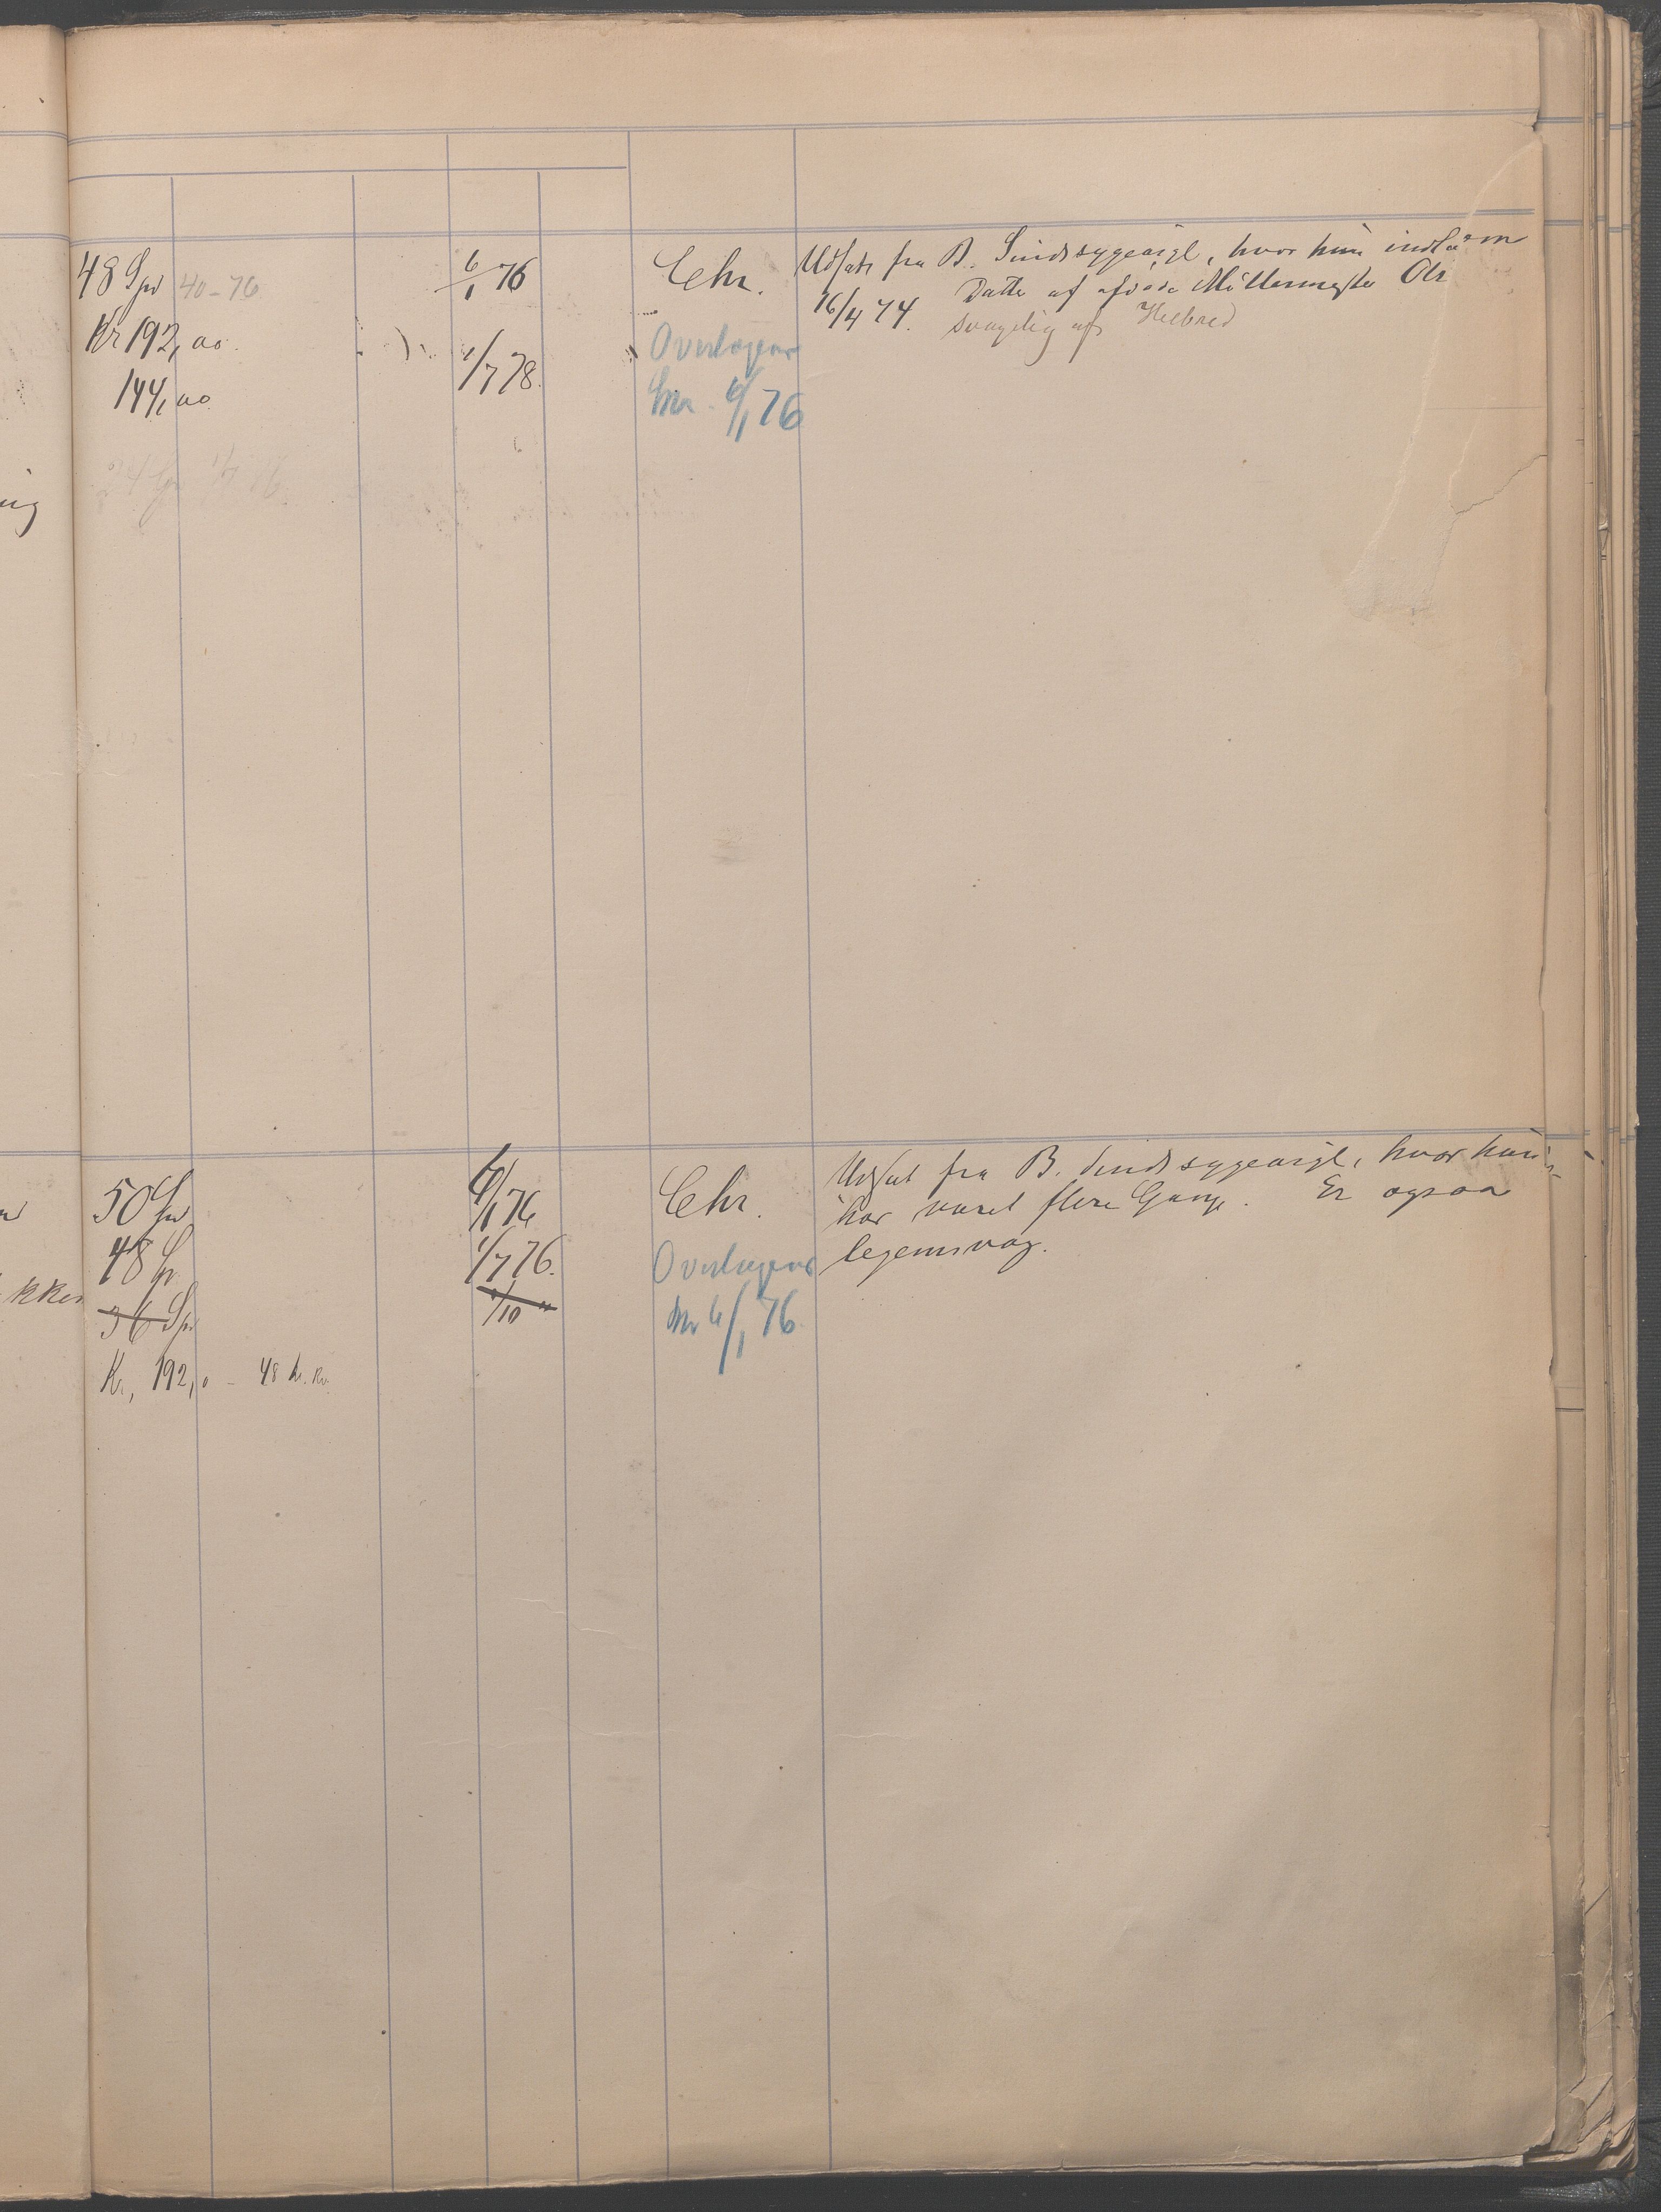 48 Spd 40-76
Kr 192,00.
144,00
6/1 76
1/7 78.
Chr.
Overlægens
6/1 76
Udsat fra B. Sindssygeasyl, hvor hun indkom
16/4 74. Datter af afdøde Møllermester Ols
svagelig af Helbred
ug
50 Spd
48 Sp
36 Sp
Kr. 192,0 - 48 Kr.
kker
6/1 76
1/7 76.
1/10 "
Chr.
Overlægens
6/1 76
Udsat fra B. Sindssygeasyl, hvor hun
har været flere Gange. Er ogsaa
legemsvag.